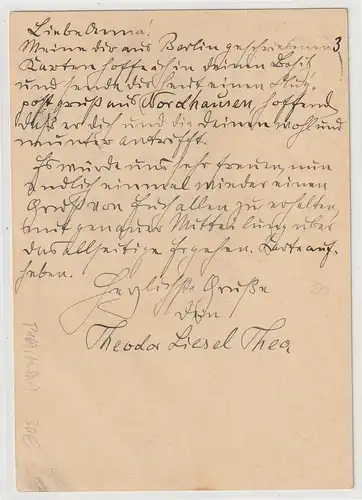 Liebe Anna!
Meine dir aus Berlin geschriebenen 3
Karten hoffe ich in deinem Besitz
und sende dir heut einen Flug-
postgruß aus Nordhausen, hoffend
daß er dich und die deinen wohl und
munter antrifft.
Es würde uns sehr freuen, nun
endlich einmal wieder einen
Gruß von Euch allen zu erhalten,
mit genauer Mitteilung über
das allseitige Ergehen. Karte auf-
heben.
Herzlichste Grüße
dein
Theodor Liesel Thea